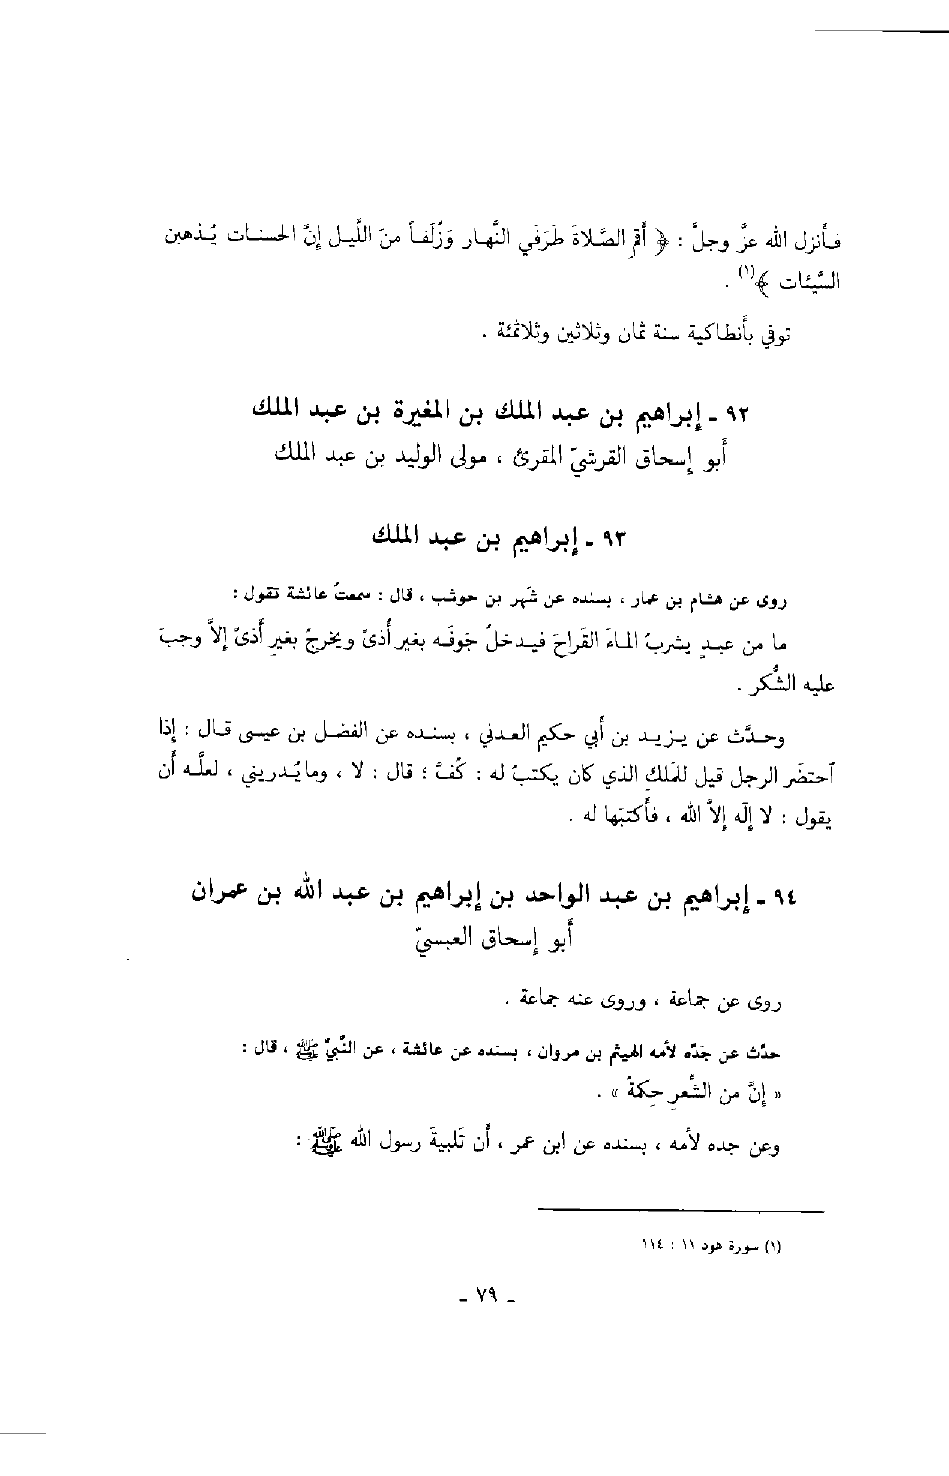 فأنزل الله عزَّ وجلَّ : ﴿ أَقِمِ الصَّلاةَ طَرَفَي النَّهار وَزُلَفاً منَ اللَّيل إنَّ الحسنات يُذهبن
السَّيِّئات ﴾(١) .
توفي بأنطاكية سنة ثمان وثلاثين وثلاثمئة .
٩٢ ـ إبراهيم بن عبد الملك بن المغيرة بن عبد الملك
أبو إسحاق القرشيّ المقرئ ، مولى الوليد بن عبد الملك
٩٣ ـ إبراهيم بن عبد الملك
روى عن هشام بن عمار ، بسنده عن شَهر بن حوشب ، قال : سمعتُ عائشة تقول :
ما من عبدٍ يشربُ الماءَ القَراحَ فيدخلُ جَوفَه بغير أذىً ويخرجُ بغيرِ أذىً إلاَّ وجبَ
عليه الشُّكر .
وحدَّث عن يزيد بن أبي حكيم العدني ، بسنده عن الفضل بن عيسى قال : إذا
ٱحتضَر الرجل قيل للمَلكِ الذي كان يكتبُ له : كُفَّ ؛ قال : لا ، وما يُدريني ، لعلَّه أن
يقول : لا إلَه إلاَّ الله ، فأكتبَها له .
٩٤ ـ إبراهيم بن عبد الواحد بن إبراهيم بن عبد الله بن عمران
أبو إسحاق العبسيّ
روى عن جماعة ، وروى عنه جماعة .
حدَّث عن جَدِّه لأمه الهيثم بن مروان ، بسنده عن عائشة ، عن النَّبيِّ ﷺ ، قال :
« إنَّ من الشِّعرِ حِكمةً » .
وعن جده لأمه ، بسنده عن ابن عمر ، أن تَلبيةَ رسول الله ﷺ :
(١) سورة هود ١١ : ١١٤
ـ ٧٩ ـ